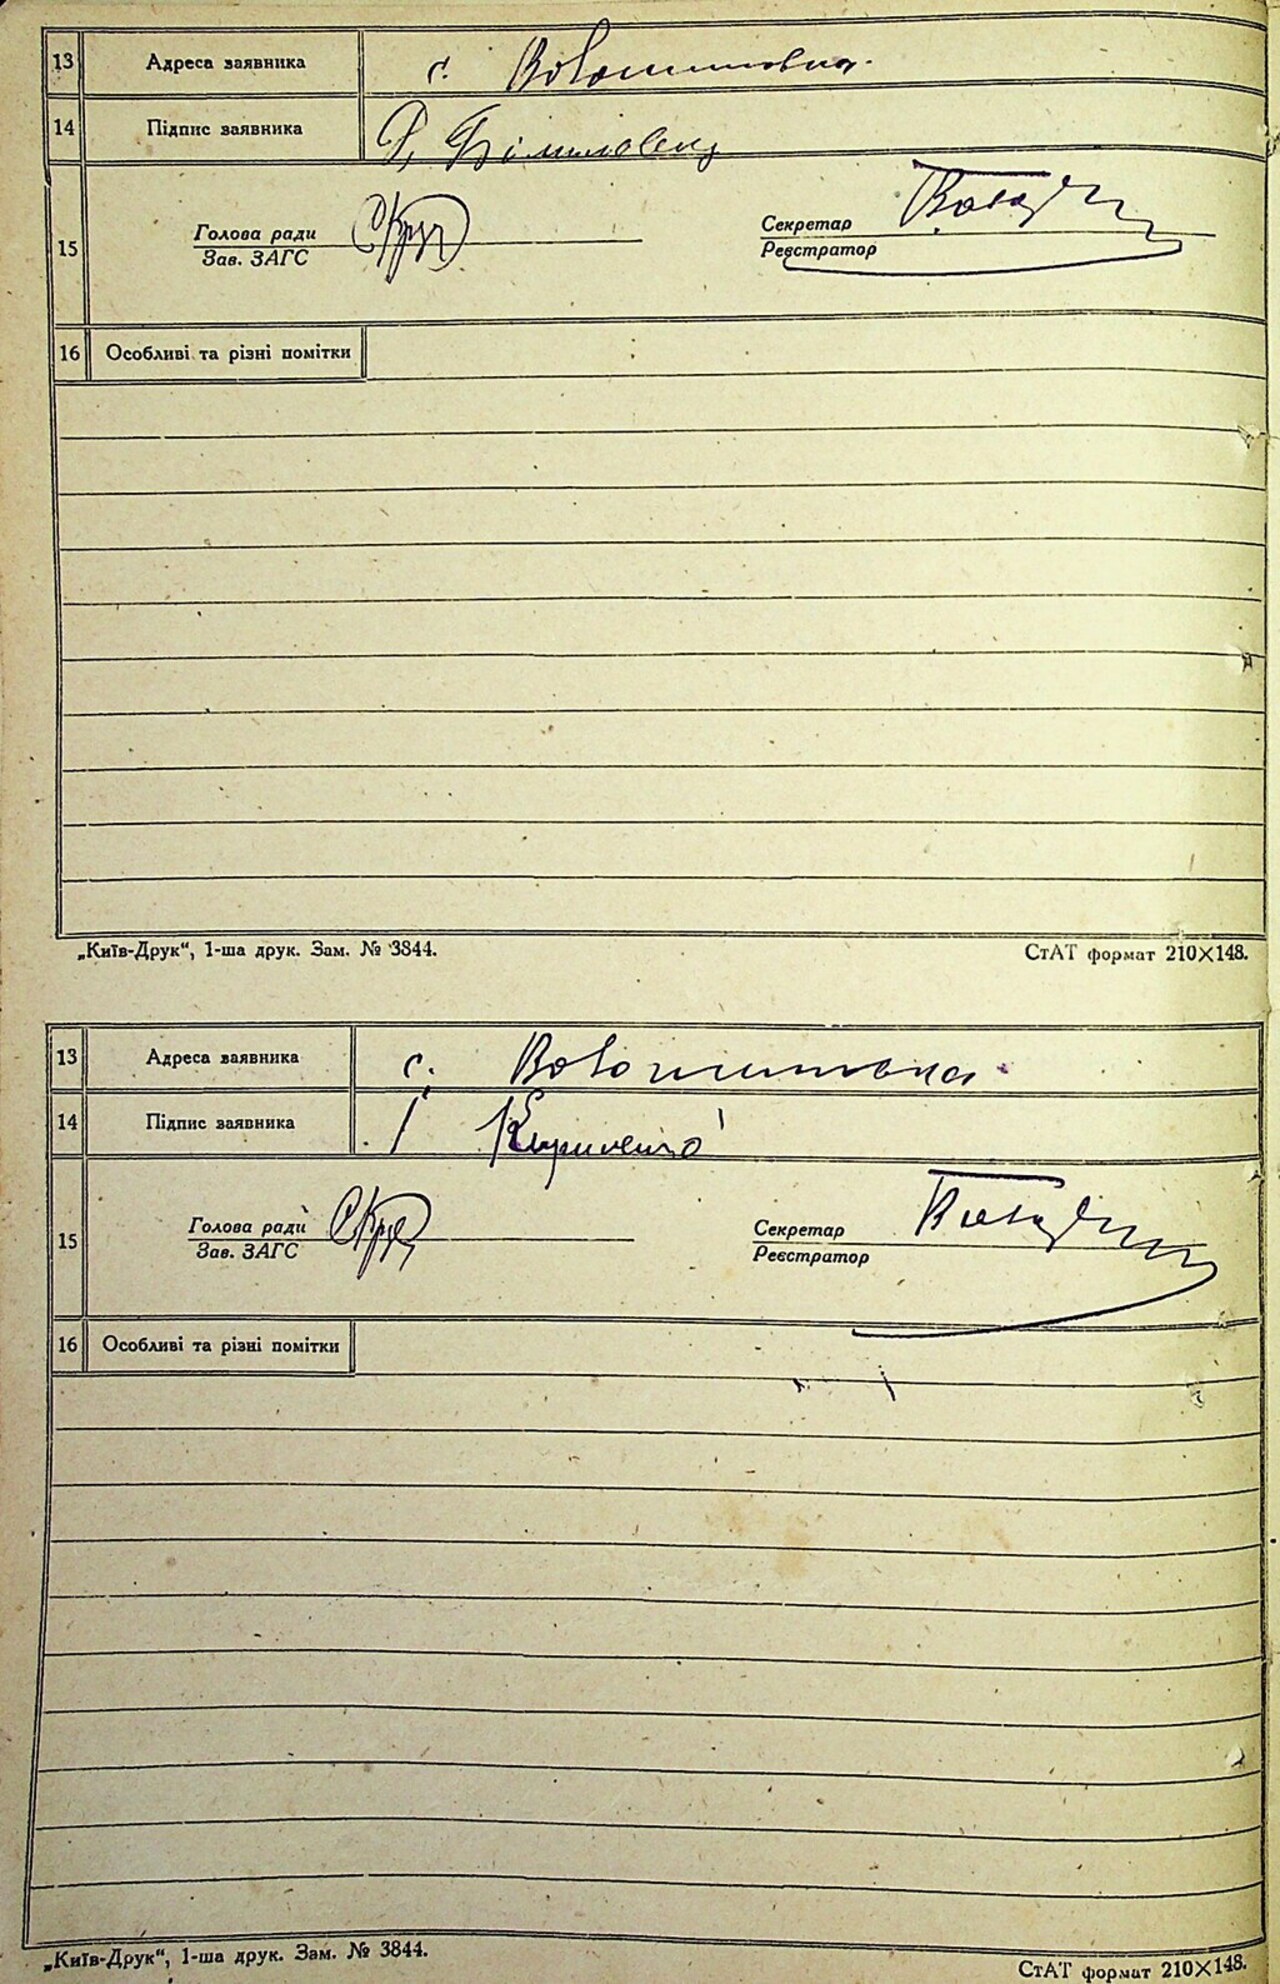 13 Адреса заявника с. Волошиновка.
14 Підпис заявника
15 Голова ради Секретар
Зав. ЗАГС Реєстратор
16 Особливі та різні помітки
„Київ-Друк“, 1-ша друк. Зам. № 3844. СтАТ формат 210×148.
13 Адреса заявника с. Волошиновка
14 Підпис заявника Кириченко
15 Голова ради Секретар
Зав. ЗАГС Реєстратор
16 Особливі та різні помітки
„Київ-Друк“, 1-ша друк. Зам. № 3844. СтАТ формат 210×148.